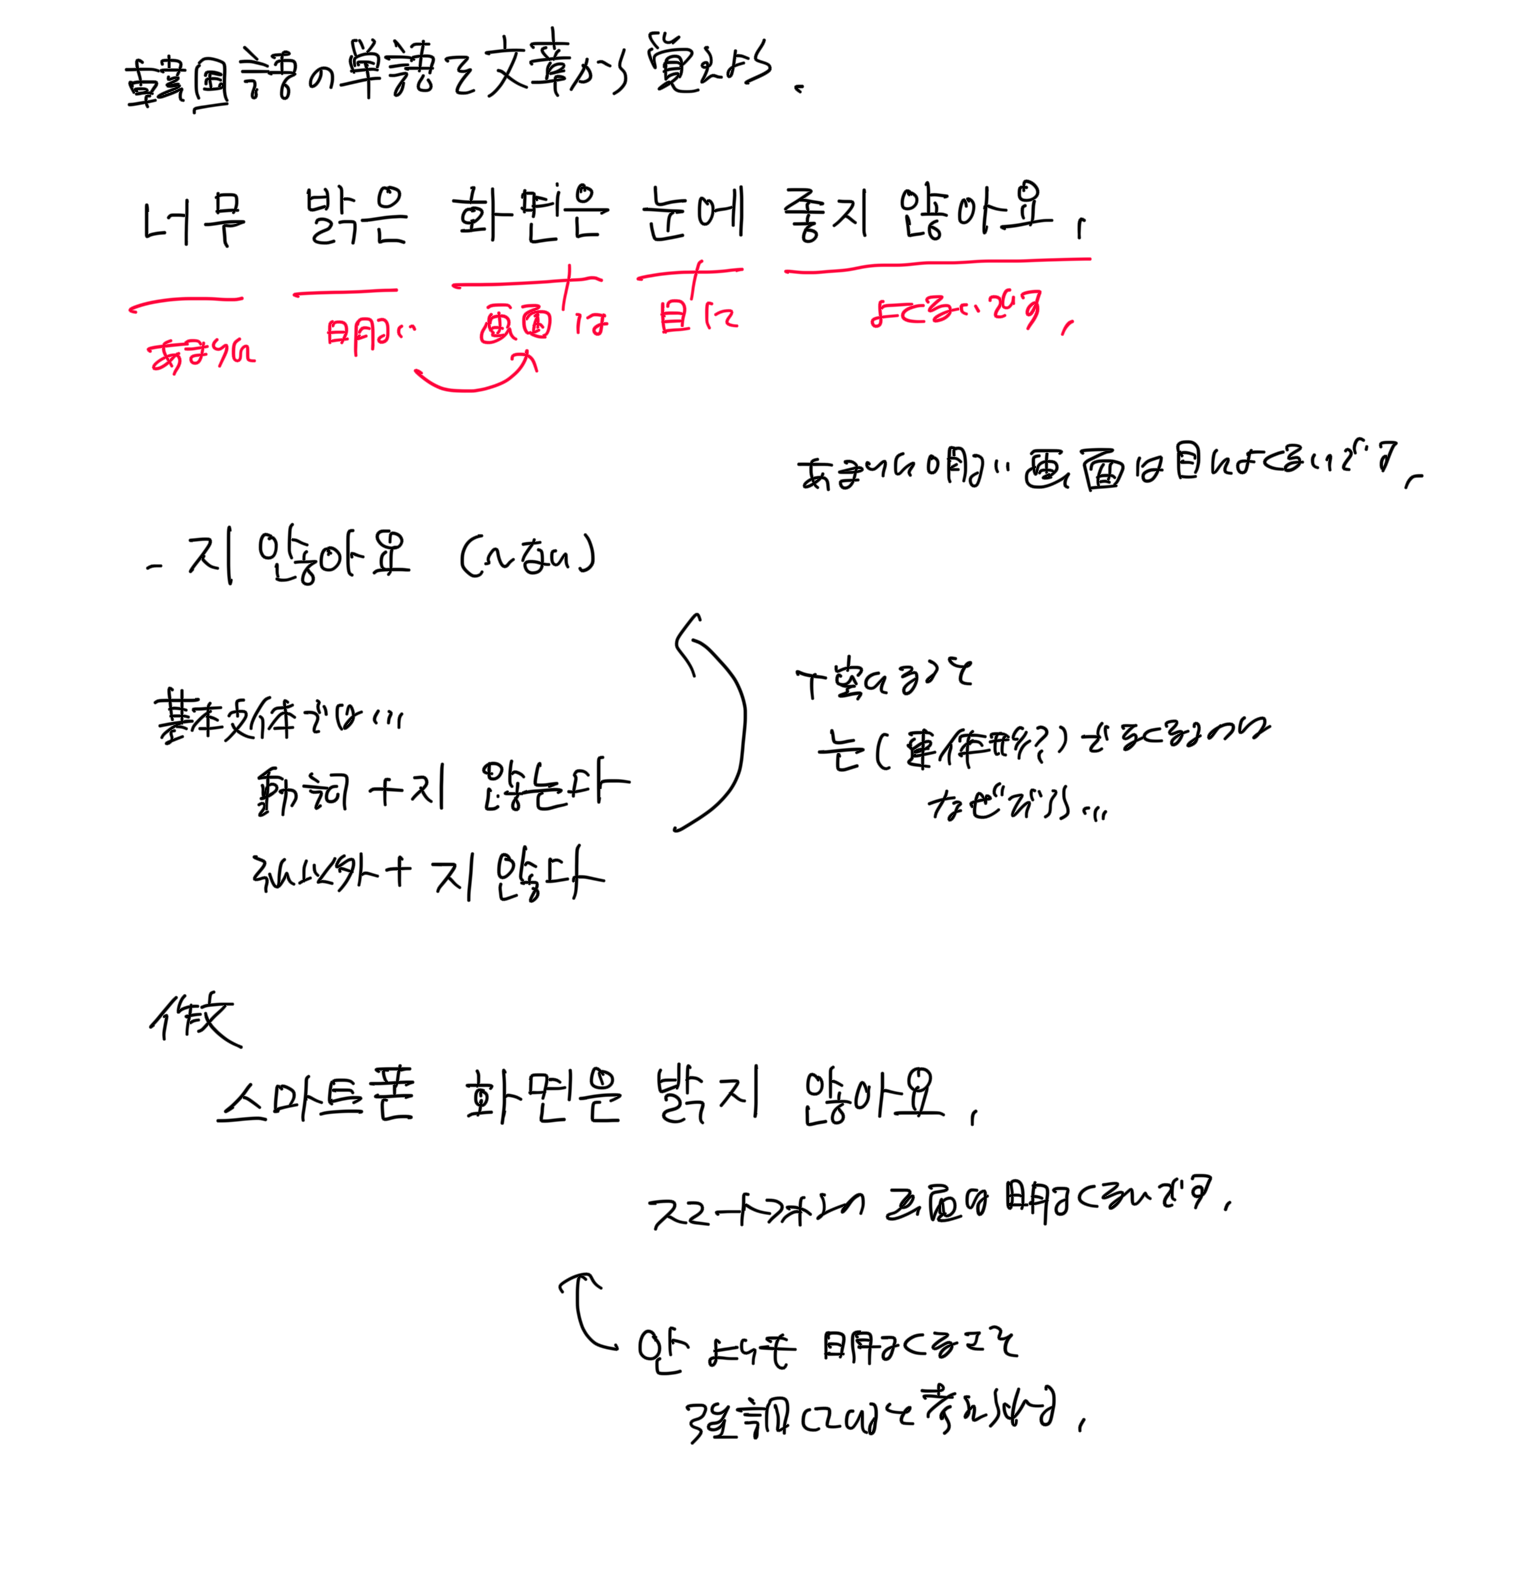 韓国語の単語を文章から覚えよう.
너무 밝은 화면은 눈에 좋지 않아요.
あまりに 明るい 画面 は 目 に よくないです.
あまりに明るい画面は目によくないです.
- 지 않아요 (〜ない)
基本文体では...
動詞 + 지 않는다
それ以外 + 지 않다
丁寧になると
는 (連体形?) でなくなるのは
なぜだろう...
作文
스마트폰 화면은 밝지 않아요.
スマートフォンの 画面は 明るくないです.
안 よりも 明るくないことを
強調していると考えられる.